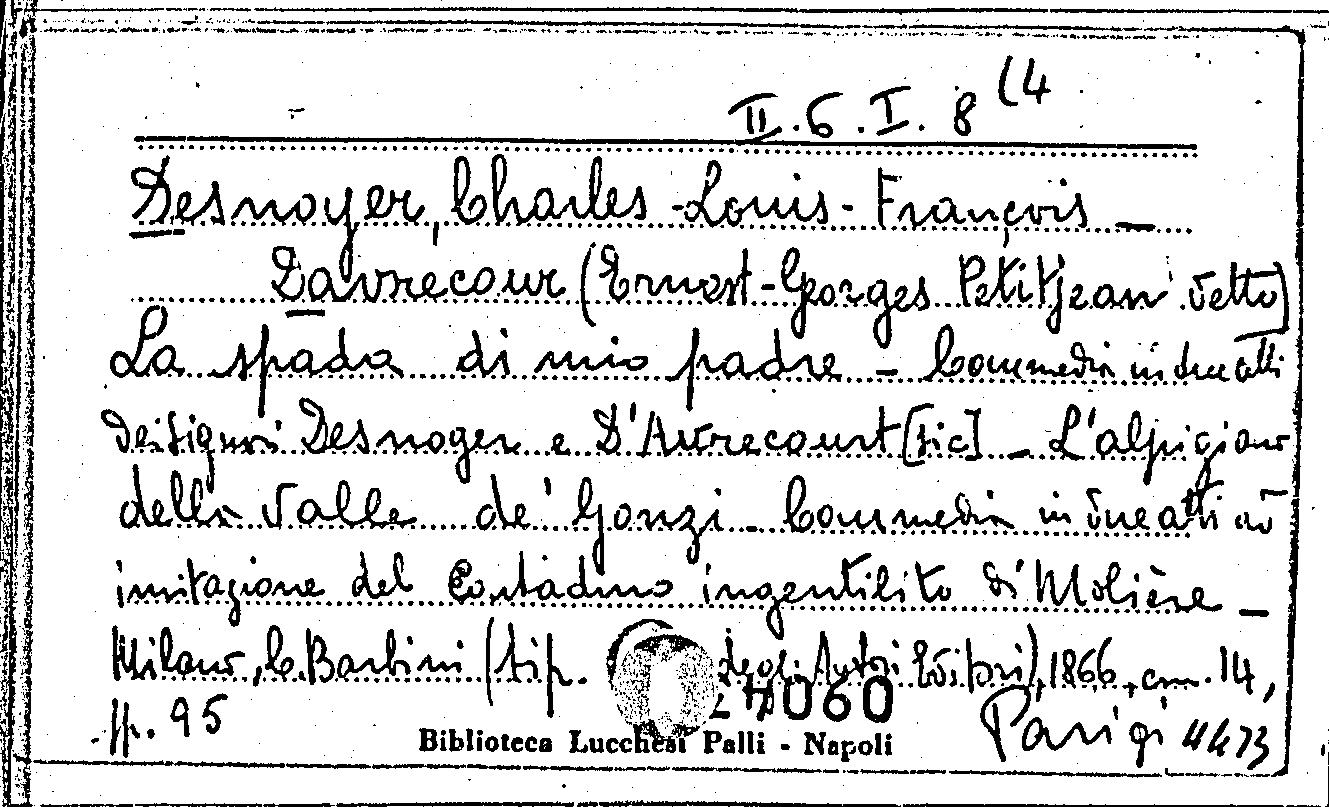 II.6.I.8 (4
Desnoyer, Charles-Louis-François —
Davrecour (Ernest-Georges Petitjean detto)
La spada di mio padre - Commedia in due atti
dei signori Desnoger e D'Avrecourt [sic] - L'alpigiano
della valle de' Gonzi - Commedia in due atti ad
imitazione del Contadino ingentilito di Molière -
Milano, C. Barbini (tip. degli Autori Editori), 1866, cm. 14,
pp. 95
060
Parigi
Biblioteca Lucchesi Palli - Napoli